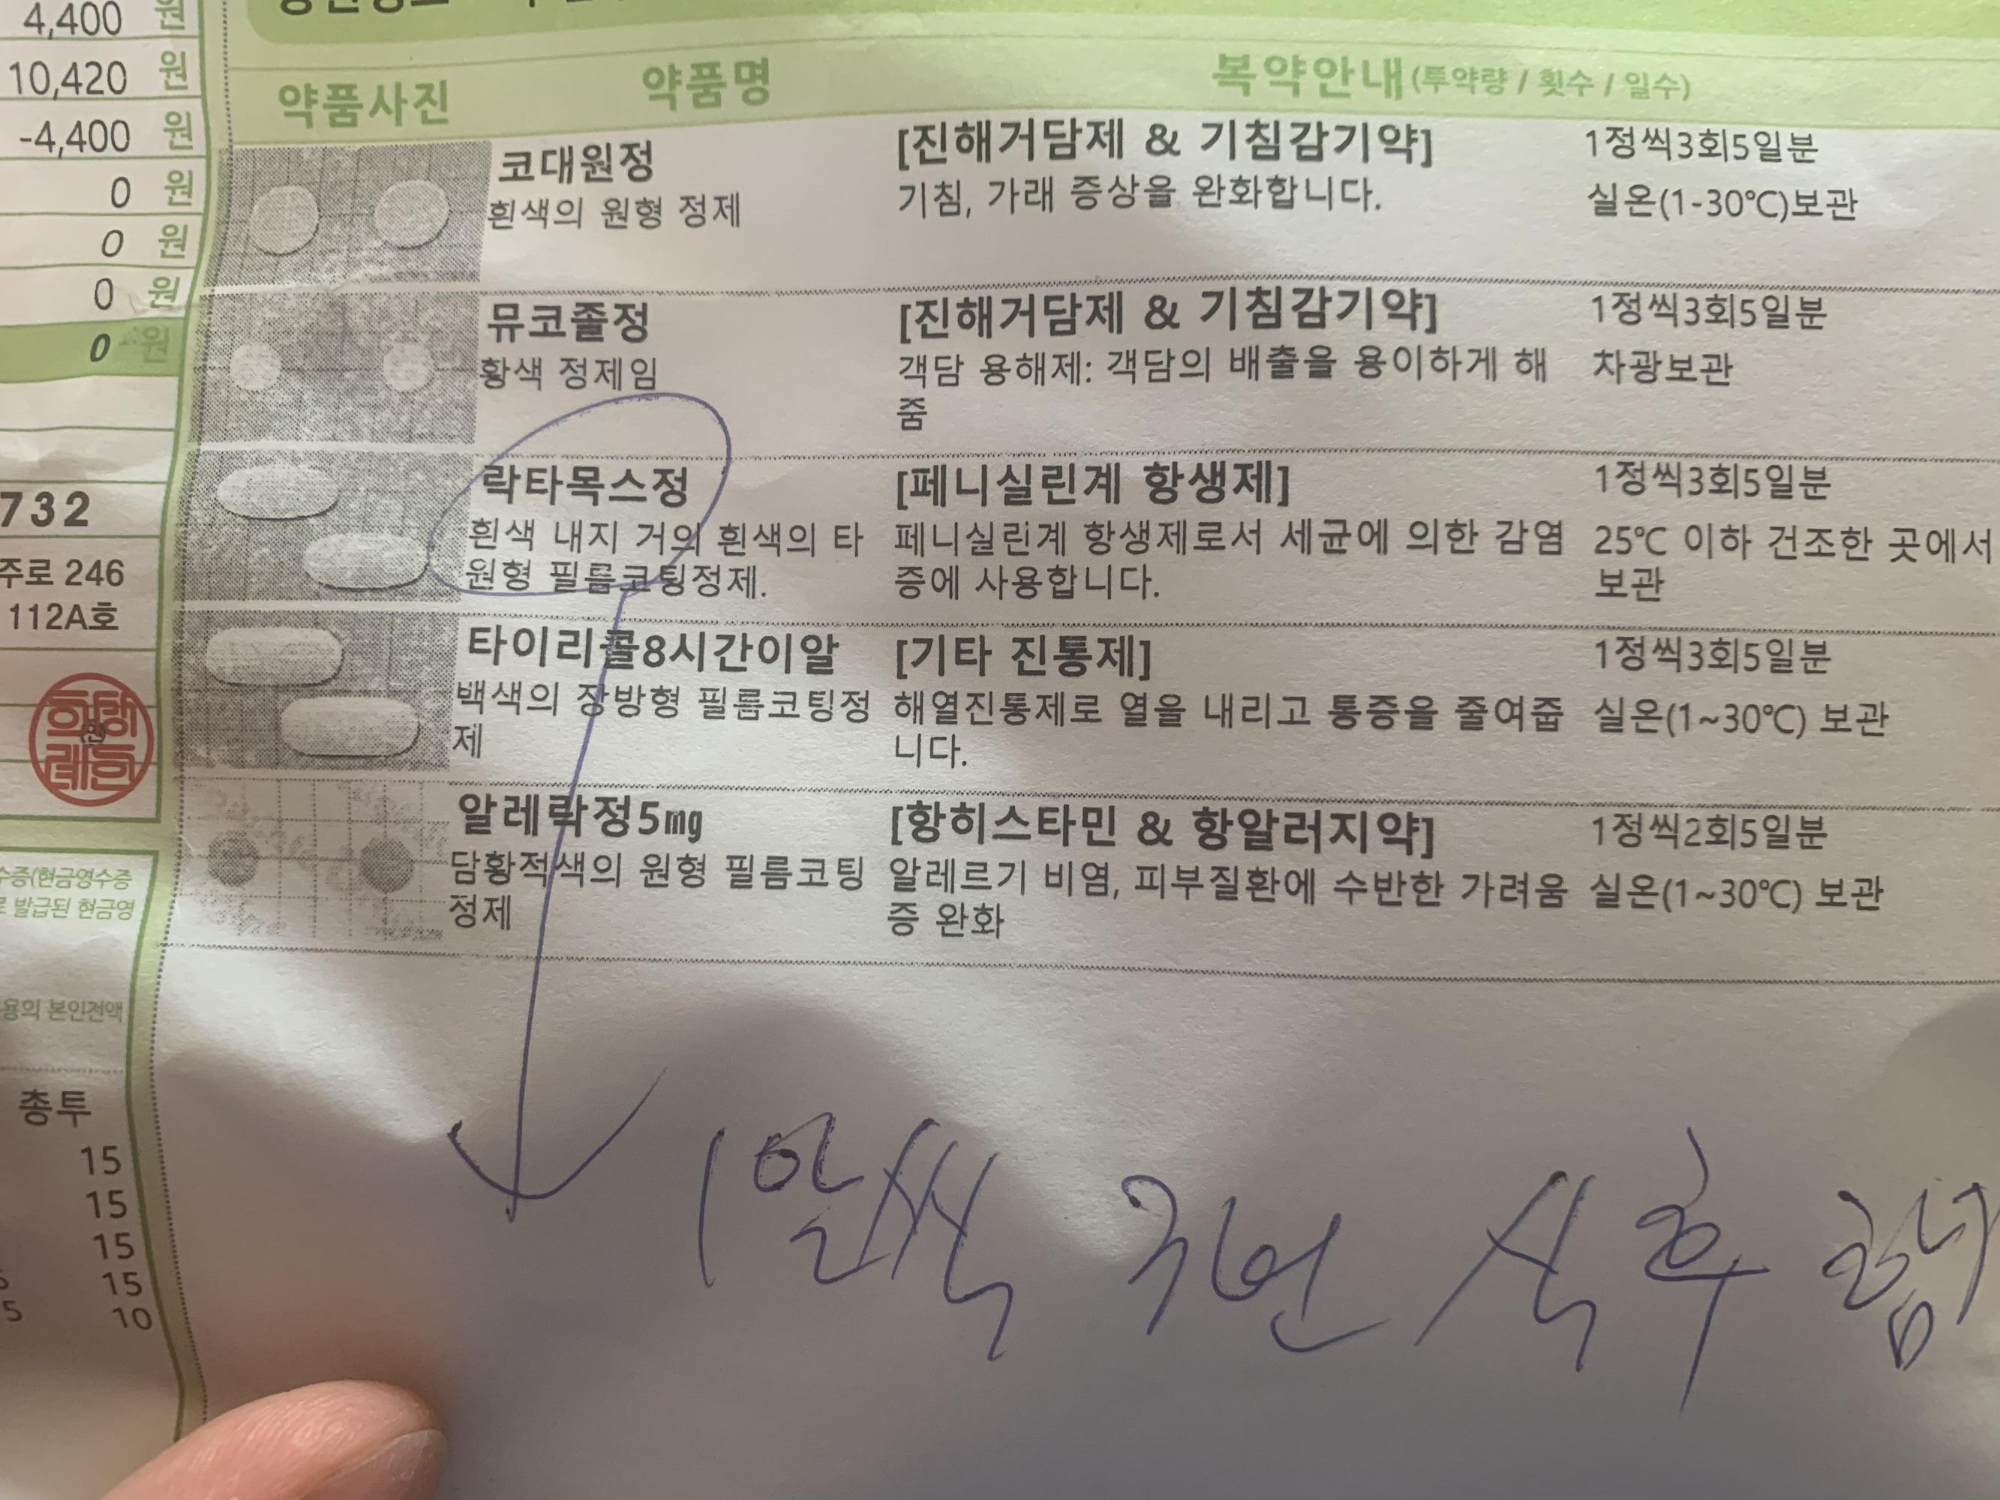 4,400 원
10,420 원
-4,400 원
0 원
0 원
0 원
0 원
732
주로 246
112A호
수증(현금영수증
발급된 현금영
용의 본인전액
총투
15
15
15
15
5 10
약품사진 약품명 복약안내(투약량 / 횟수 / 일수)
코대원정 [진해거담제 & 기침감기약] 1정씩3회5일분
흰색의 원형 정제 기침, 가래 증상을 완화합니다. 실온(1-30℃)보관
뮤코졸정 [진해거담제 & 기침감기약] 1정씩3회5일분
황색 정제임 객담 용해제: 객담의 배출을 용이하게 해 차광보관
줌
락타목스정 [페니실린계 항생제] 1정씩3회5일분
흰색 내지 거의 흰색의 타 페니실린계 항생제로서 세균에 의한 감염 25℃ 이하 건조한 곳에서
원형 필름코팅정제. 증에 사용합니다. 보관
타이리콜8시간이알 [기타 진통제] 1정씩3회5일분
백색의 장방형 필름코팅정 해열진통제로 열을 내리고 통증을 줄여줍 실온(1~30℃) 보관
제 니다.
알레락정5㎎ [항히스타민 & 항알러지약] 1정씩2회5일분
담황적색의 원형 필름코팅 알레르기 비염, 피부질환에 수반한 가려움 실온(1~30℃) 보관
정제 증 완화
1알씩 3번 식후